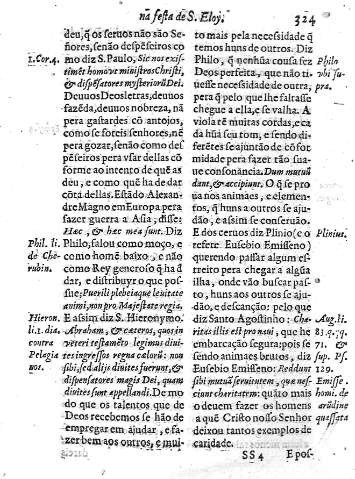 na festa de S. Eloy. 324
deu, q̃ os seruos não são Se-
ñores, senão despẽseiros co
mo diz S. Paulo, Sic nos exis-
1. Cor. 4.
timèt homo vt ministros Christi,
& dispẽsatores mysteriorũ Dei.
Deuuos Deos letras, deuuos
fazẽda, deuuos nobreza, nã
pera gastardes cõ antojos,
como se foreis senhores, nẽ
pera gozar, senão como des
pẽseiros pera vsar dellas cõ
forme ao intento de quẽ as
deu, e como quẽ ha de dar
cõta dellas. Estãdo Alexan-
dre Magno em Europa pera
fazer guerra a Asia, disse:
Hac, & hac mea sunt. Diz
Philo, falou como moço, e
como homẽ baixo, e não
como Rey generoso q̃ ha d
dar, e distribuyr o que pos-
sue; Puerili plebeiaque leuitate
animi, non pro Majestate regia.
Phil. li.
de Che-
rubin.
E assim diz S. Hieronymo.
Abraham, & cæteros, quos in
veteri testamẽto legimus diui-
tes ingressos regna calorũ: non
sibi, sed alijs diuites fuerunt, &
dispensatores magis Dei, quam
diuites sunt appellandi. De mo
do que os talentos que de
Deos recebemos se hão de
empregar em ajudar, e fa-
zer bem aos outros, e mui-
Hieron.
li. 1. dia.
contra
Pelagia
nos.
to mais pela necessidade q̃
temos huns de outros. Diz
Philo, q̃ nenhũa cousa fez
Deos perfeita, que não ti-
uesse necessidade de outra,
pera q̃ pelo que lhe faltasse
chegue a ella, e se valha. A
viola tẽ muitas cordas, e ca
da hũa seu tom, e sendo di-
ferẽtes se ajuntão de cõfor
midade pera fazer tão sua-
ue consonancia. Dum mutuũ
dant, & accipiunt. O q̃ se pro
ua nos animaes, e elemen-
tos, q̃ huns a outros se aju-
dão, e assim se conseruão.
Philo
vbi su-
pra.
E dos ceruos diz Plinio (e o
refere Eusebio Emisseno)
querendo passar algum es-
treito pera chegar a algũa
ilha, onde vão buscar pas-
to, huns aos outros se aju-
dão, e descanção: pelo que
diz Santo Agostinho: Cha-
ritas illis est pro naui, que he
embarcação segura; pois se
sendo animaes brutos, diz
Eusebio Emisseno: Reddunt
sibi mutuã seruitutem, quæ nes-
ciunt charitatem: quãto mais
o deuem fazer os homens
a quẽ Cristo nosso Senhor
deixou tantos exemplos de
caridade.
Plinius.
Aug. li.
83. q. q.
71. &
sup. Ps.
129.
Emisse.
homi.
de
SS 4 E pos-